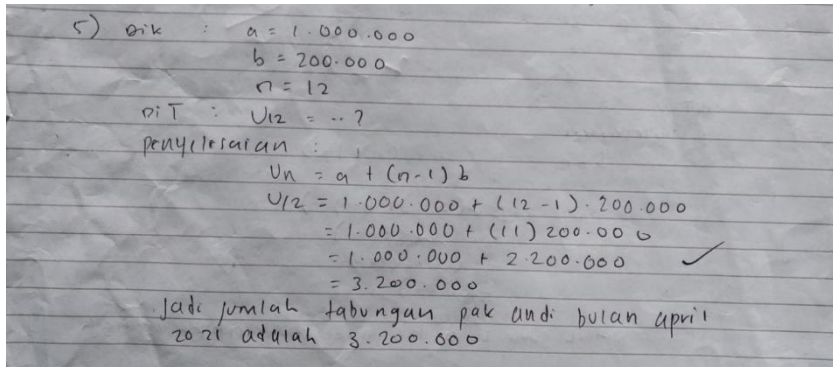 5) Dik : a = 1.000.000
b = 200.000
n = 12
DiT : U12 = ..?
penyelesaian :
Un = a + (n-1) b
U12 = 1.000.000 + (12 - 1) . 200.000
= 1.000.000 + (11) 200.000
= 1.000.000 + 2.200.000 ✓
= 3.200.000
Jadi jumlah tabungan pak andi bulan april
2021 adalah 3.200.000